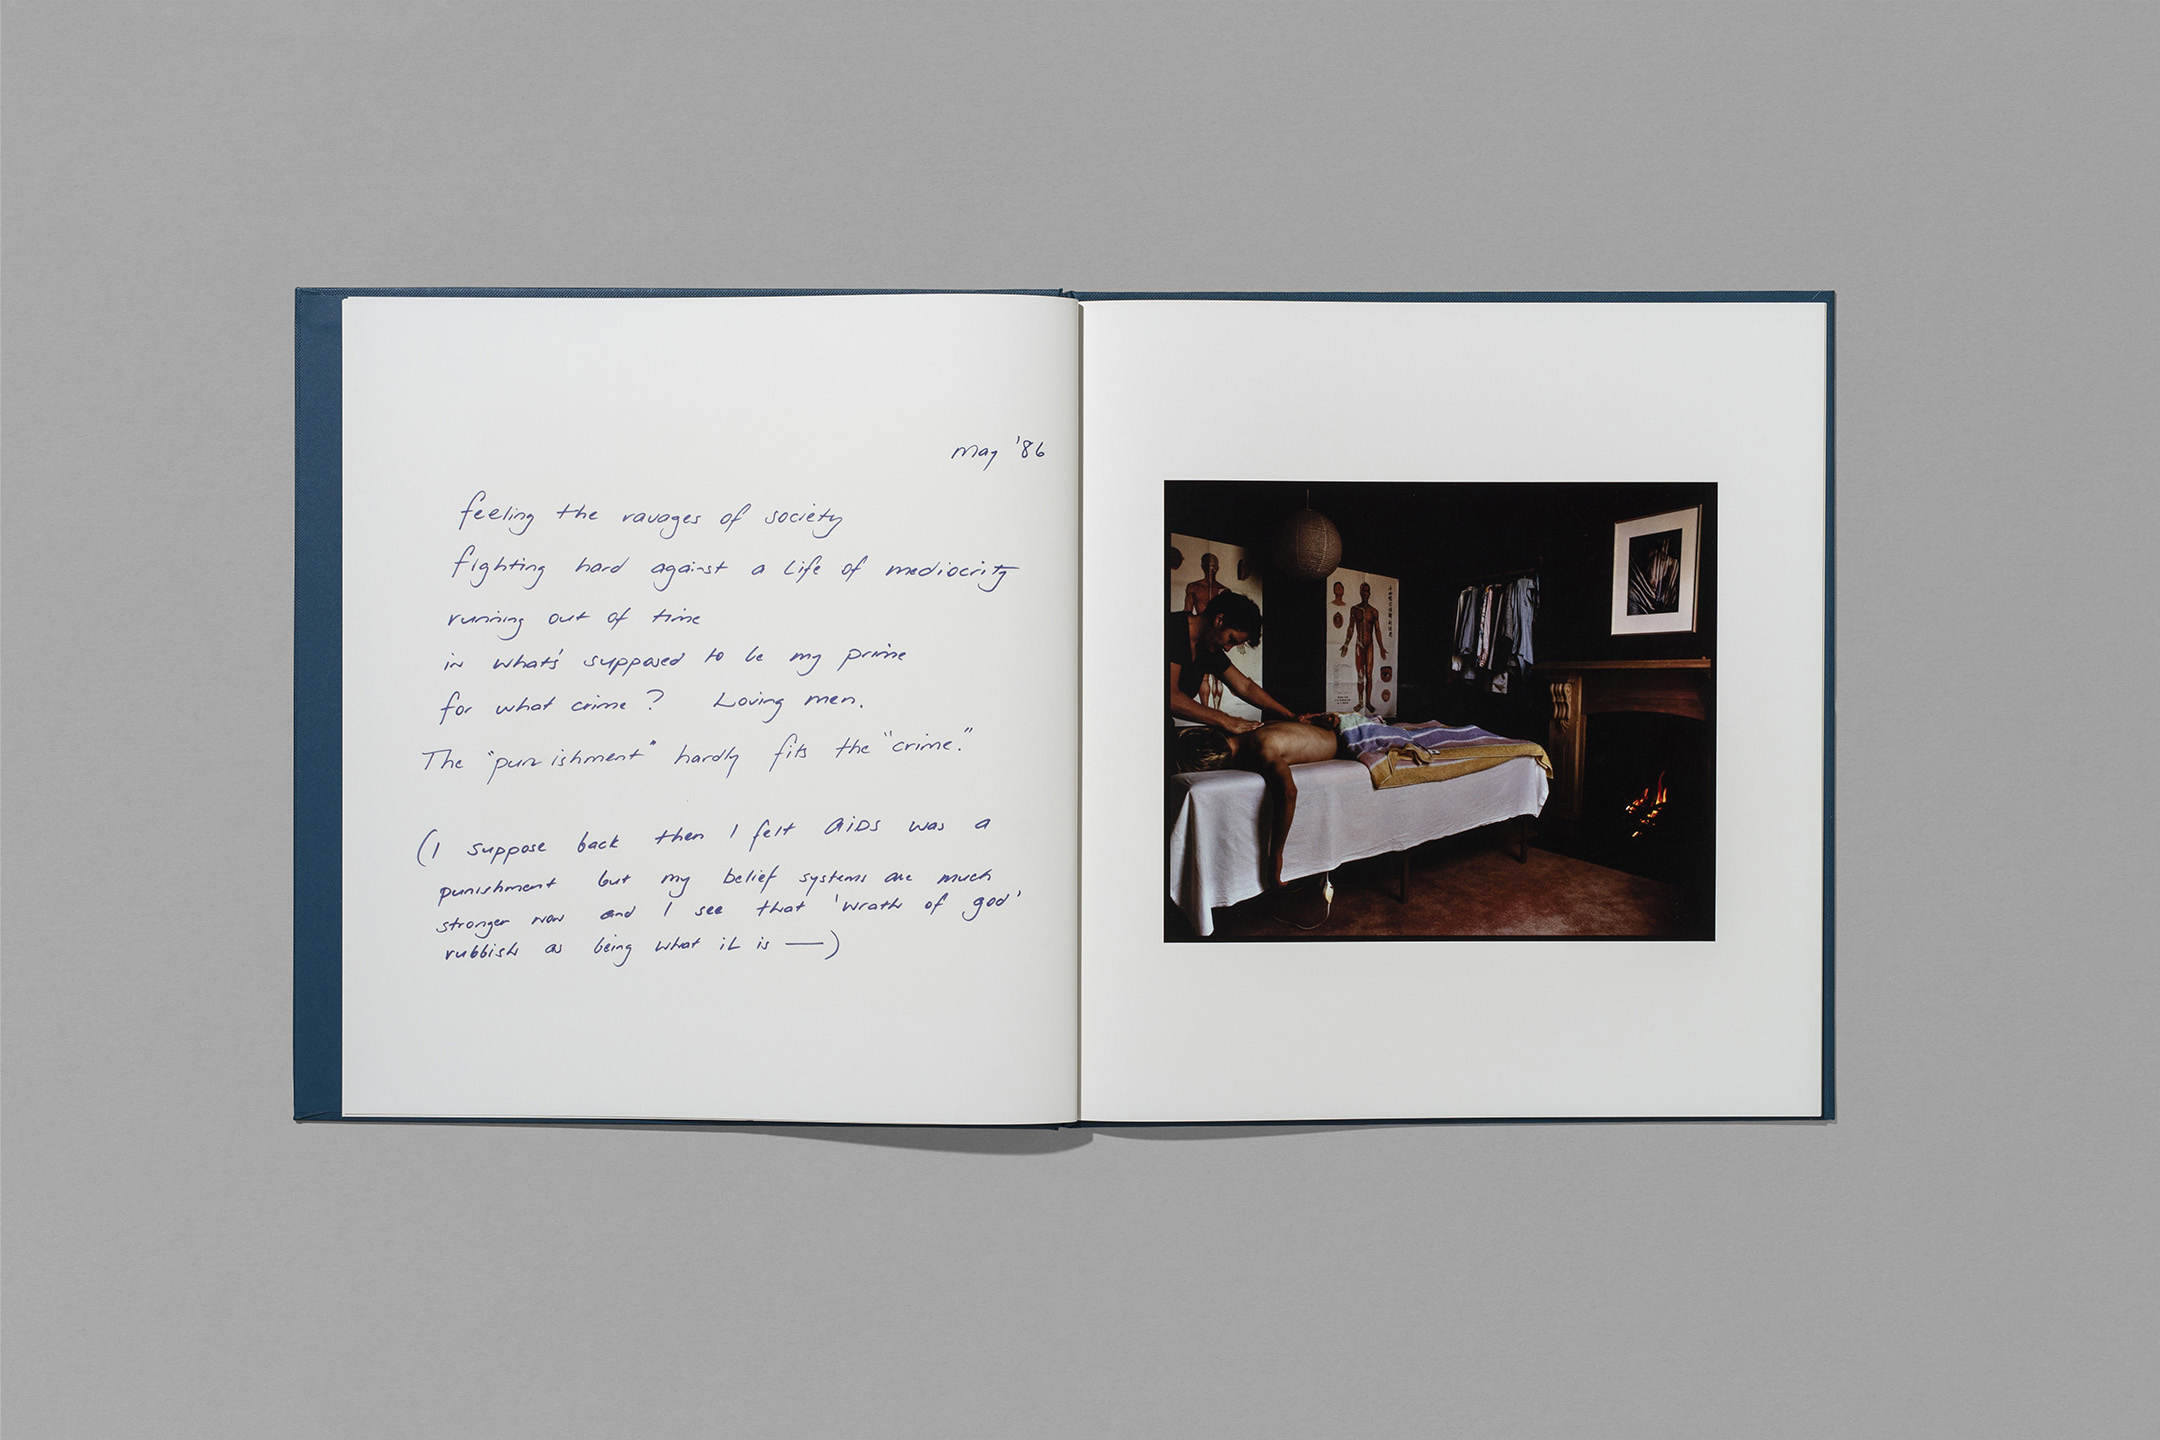 May '86
feeling the ravages of society
fighting hard against a life of mediocrity
running out of time
in what's supposed to be my prime
for what crime? Loving men.
The "punishment" hardly fits the "crime."
(I suppose back then I felt AIDS was a
punishment but my belief systems are much
stronger now and I see that 'wrath of god'
rubbish as being what it is —)